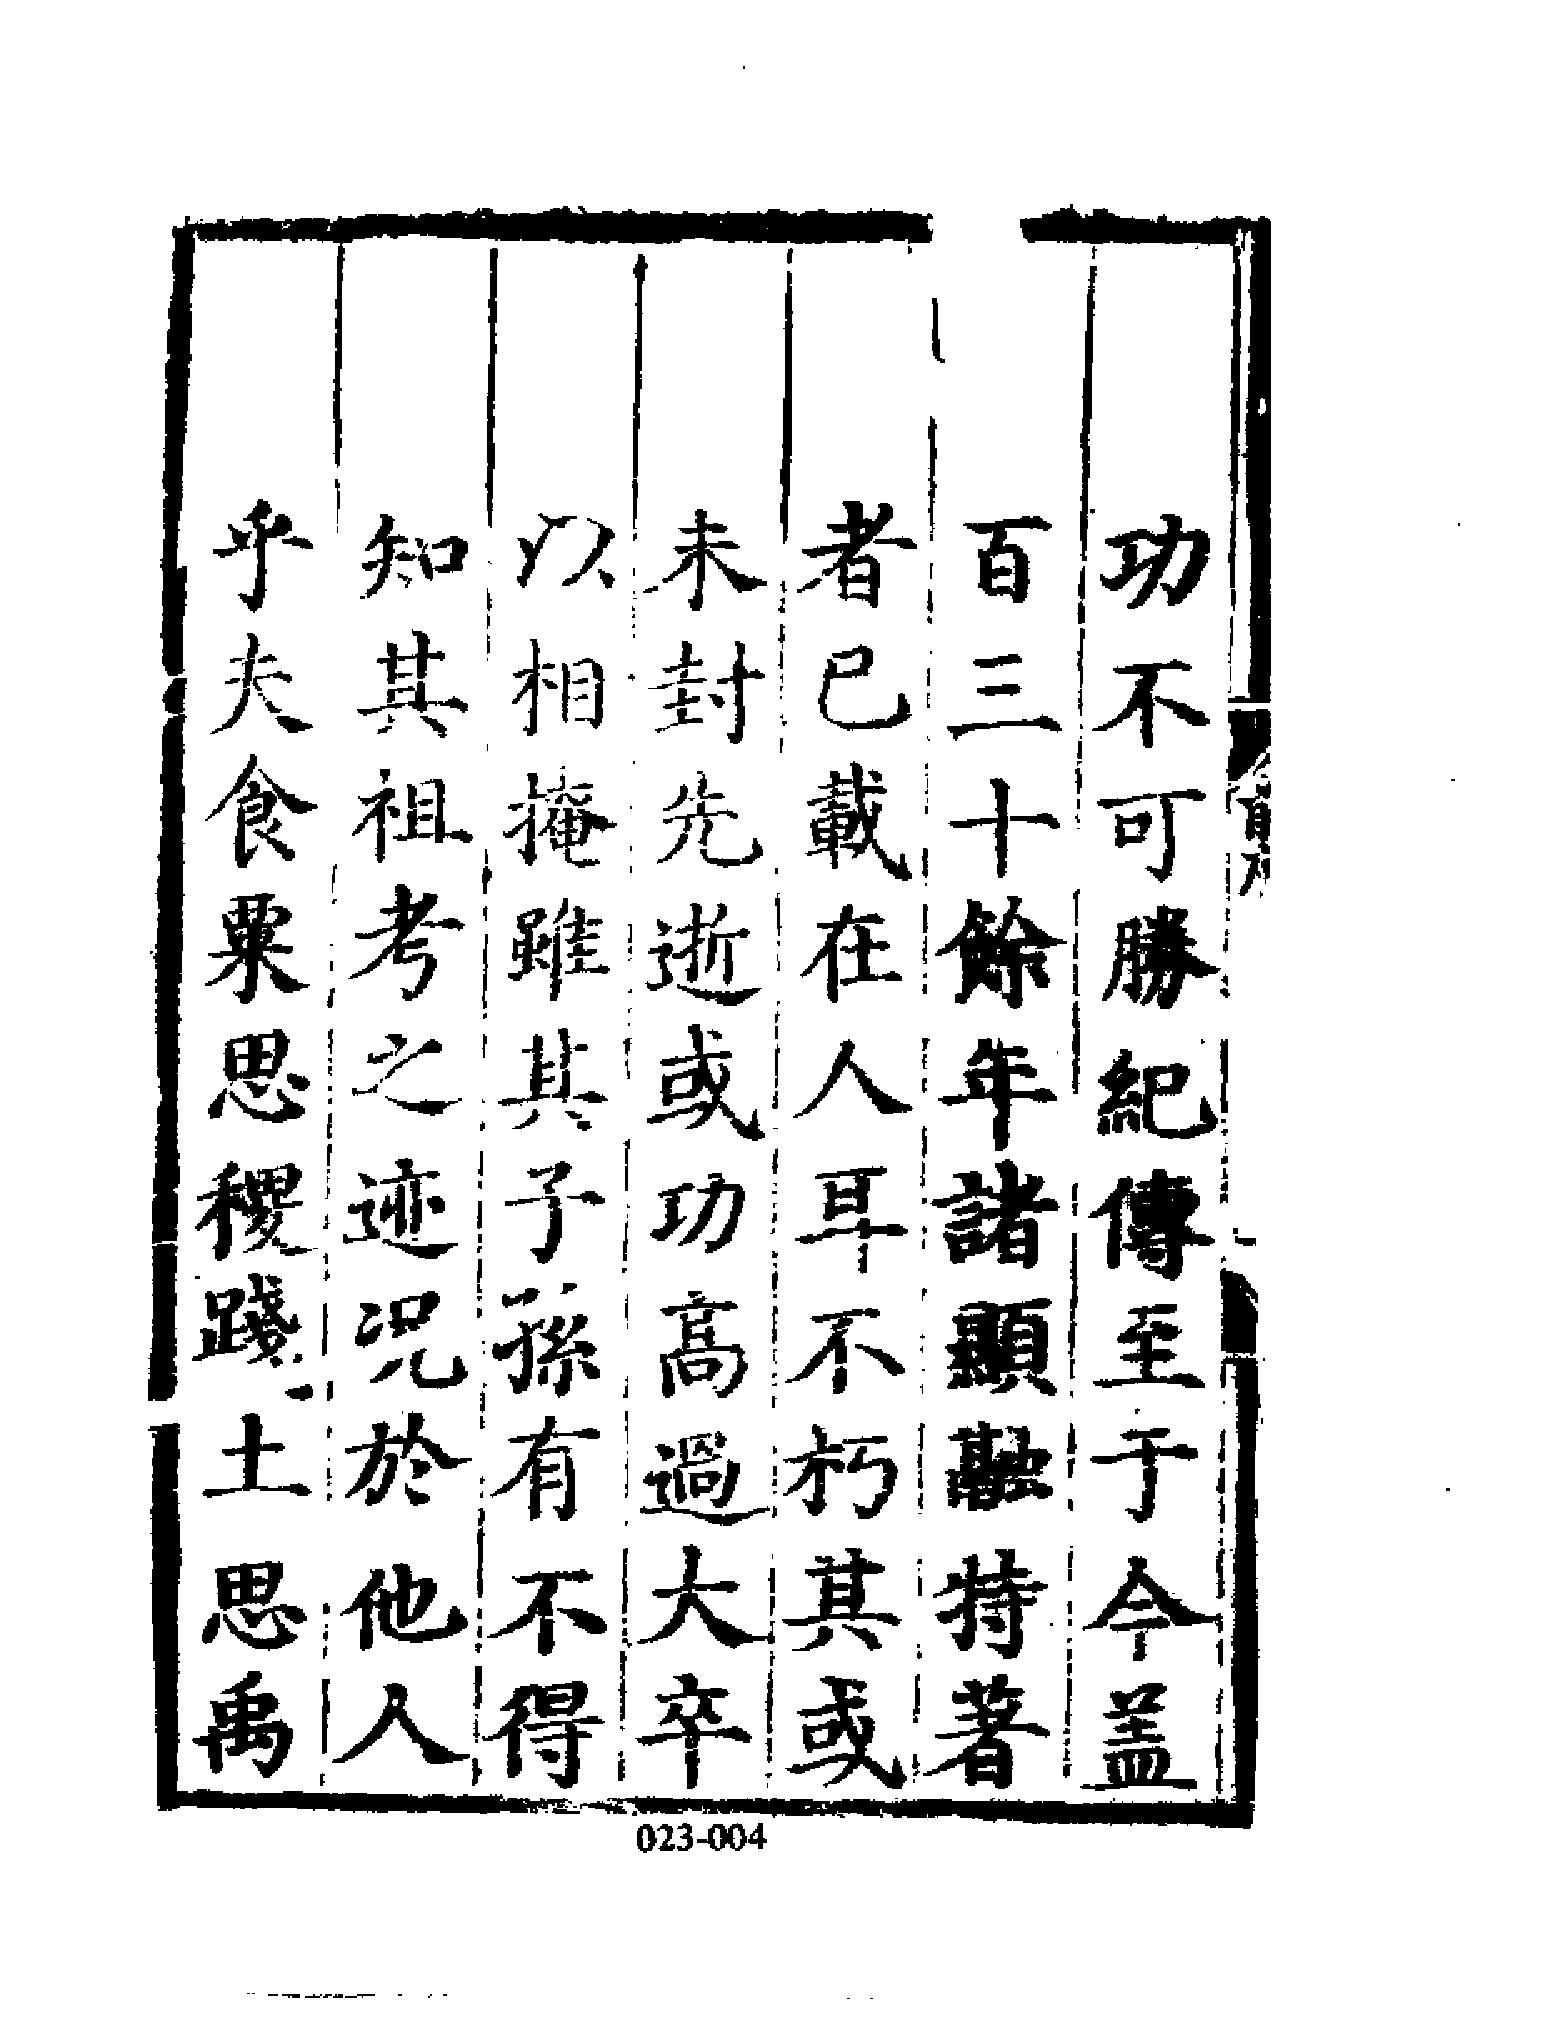 功不可勝紀傳至于今盖
百三十餘年諸顯融特著
者已載在人耳不朽其或
未封先逝或功高過大卒
以相掩雖其子孫有不得
知其祖考之迹况於他人
乎夫食粟思稷踐土思禹
023-004